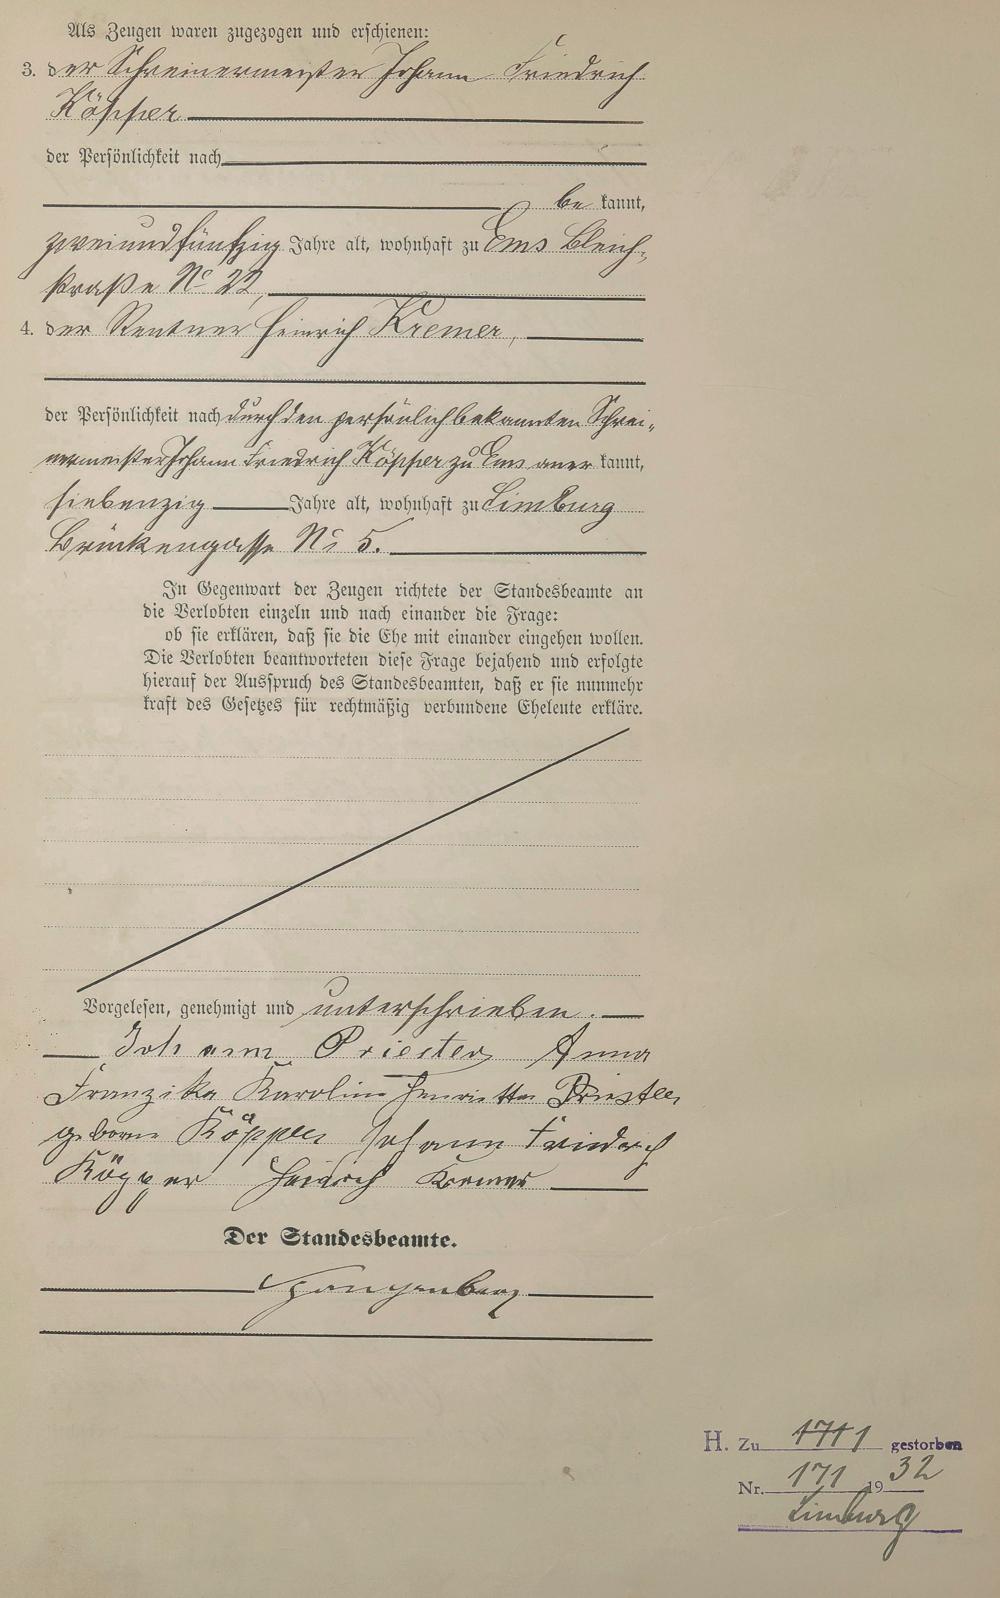 Als Zeugen waren zugezogen und erschienen:
3. der Schreinermeister Johann Friedrich
Köpper
der Persönlichkeit nach
be kannt,
zweiundfünfzig Jahre alt, wohnhaft zu Ems Bleich-
straße No 22,
4. der Rentner Heinrich Kremer,
der Persönlichkeit nach durch den persönlich bekannten Schrei-
nermeister Johann Friedrich Köpper zu Ems aner kannt,
siebenzig Jahre alt, wohnhaft zu Limburg
Brückengasse No 5.
In Gegenwart der Zeugen richtete der Standesbeamte an
die Verlobten einzeln und nach einander die Frage:
ob sie erklären, daß sie die Ehe mit einander eingehen wollen.
Die Verlobten beantworteten diese Frage bejahend und erfolgte
hierauf der Ausspruch des Standesbeamten, daß er sie nunmehr
kraft des Gesetzes für rechtmäßig verbundene Eheleute erkläre.
Vorgelesen, genehmigt und unterschrieben.
Johann Priester Anna
Franzika Karolina Henriette Priester
geborne Köpper Johann Friedrich
Köpper Heinrich Kremer
Der Standesbeamte.
Spangenberg
H. Zu 1711 gestorben
Nr. 171 1932
Limburg